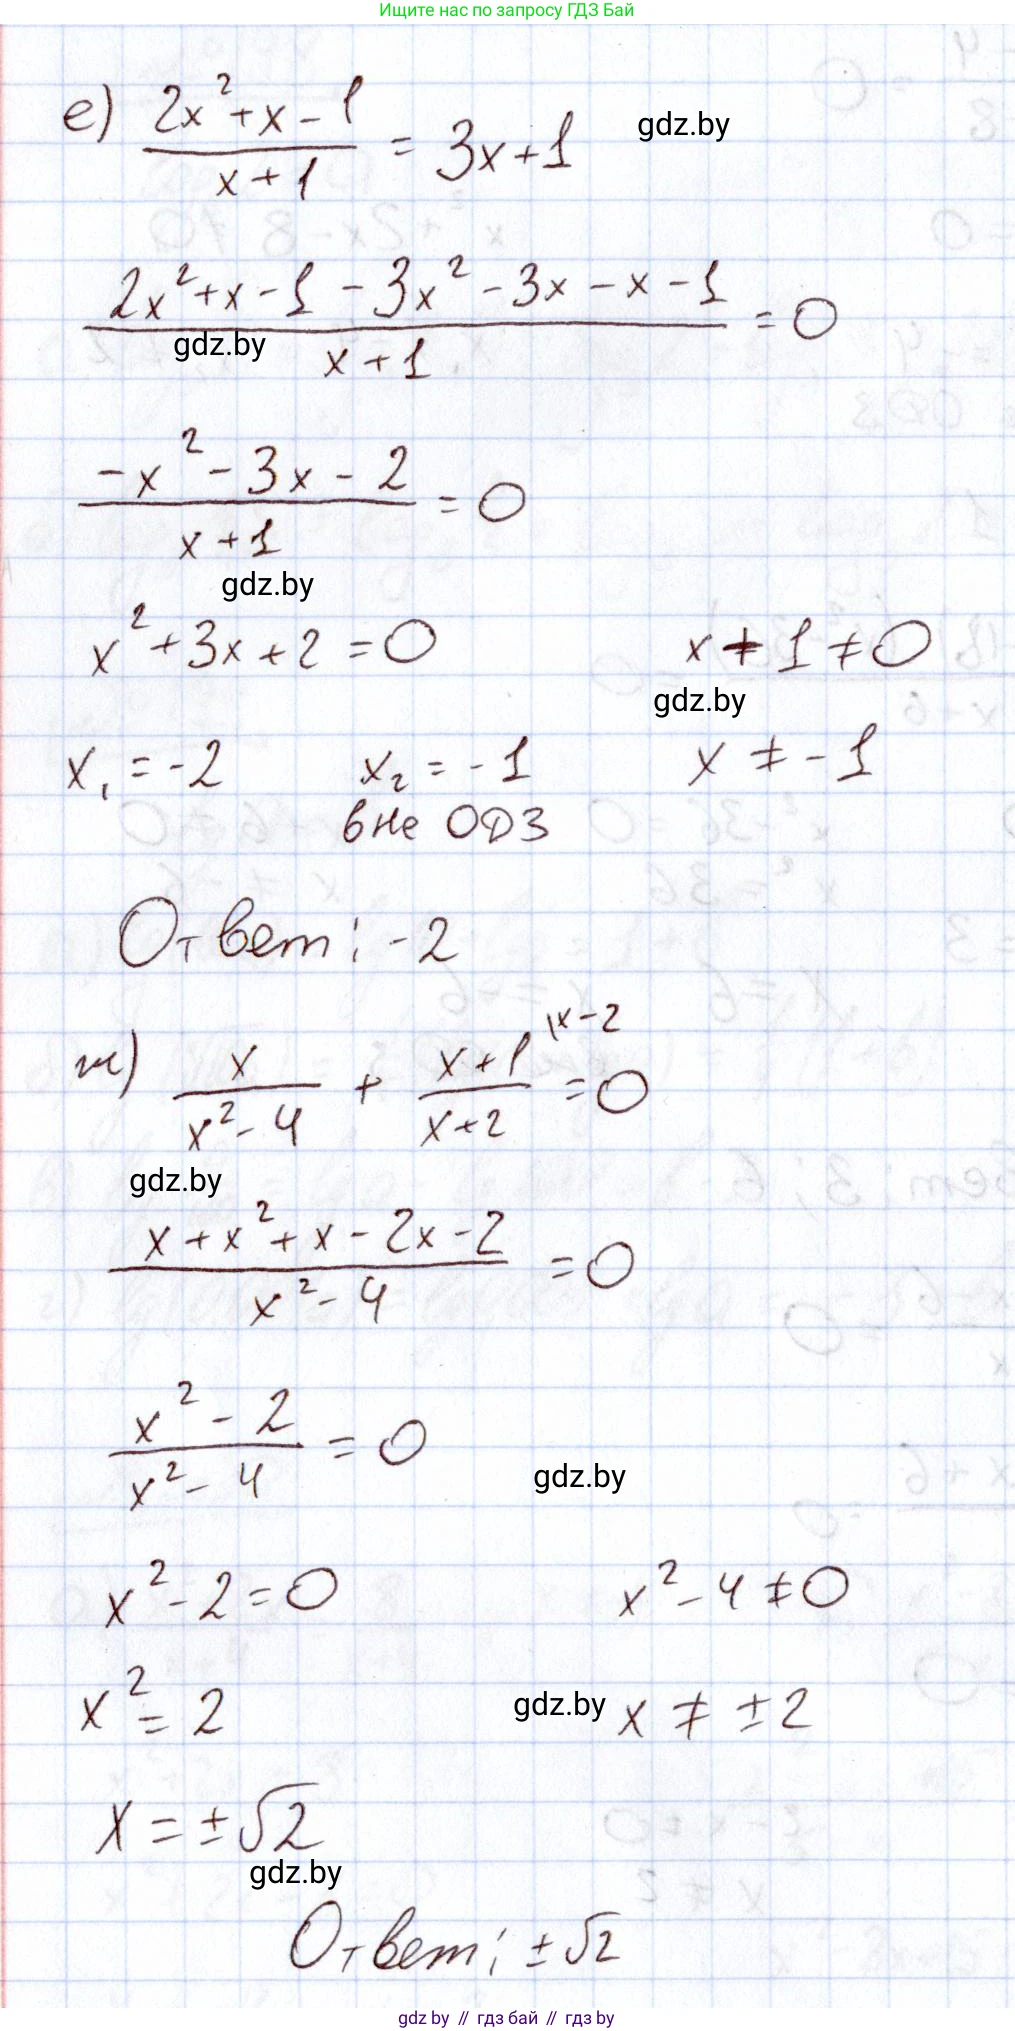 Ищите нас по запросу ГДЗ Бай
е) (2x²+x-1)/(x+1) = 3x+1
gdz.by
(2x²+x-1-3x²-3x-x-1)/(x+1) = 0
gdz.by
(-x²-3x-2)/(x+1) = 0
gdz.by
x²+3x+2=0 x+1≠0
gdz.by
x₁=-2 x₂=-1 x≠-1
вне ОДЗ
Ответ: -2
ж) x/(x²-4) + (x+1)/(x+2) \x-2 = 0
gdz.by
(x+x²+x-2x-2)/(x²-4) = 0
(x²-2)/(x²-4) = 0
gdz.by
x²-2=0 x²-4≠0
x²=2 gdz.by x≠±2
x=±√2
gdz.by
Ответ: ±√2
gdz by // гдз бай // gdz by